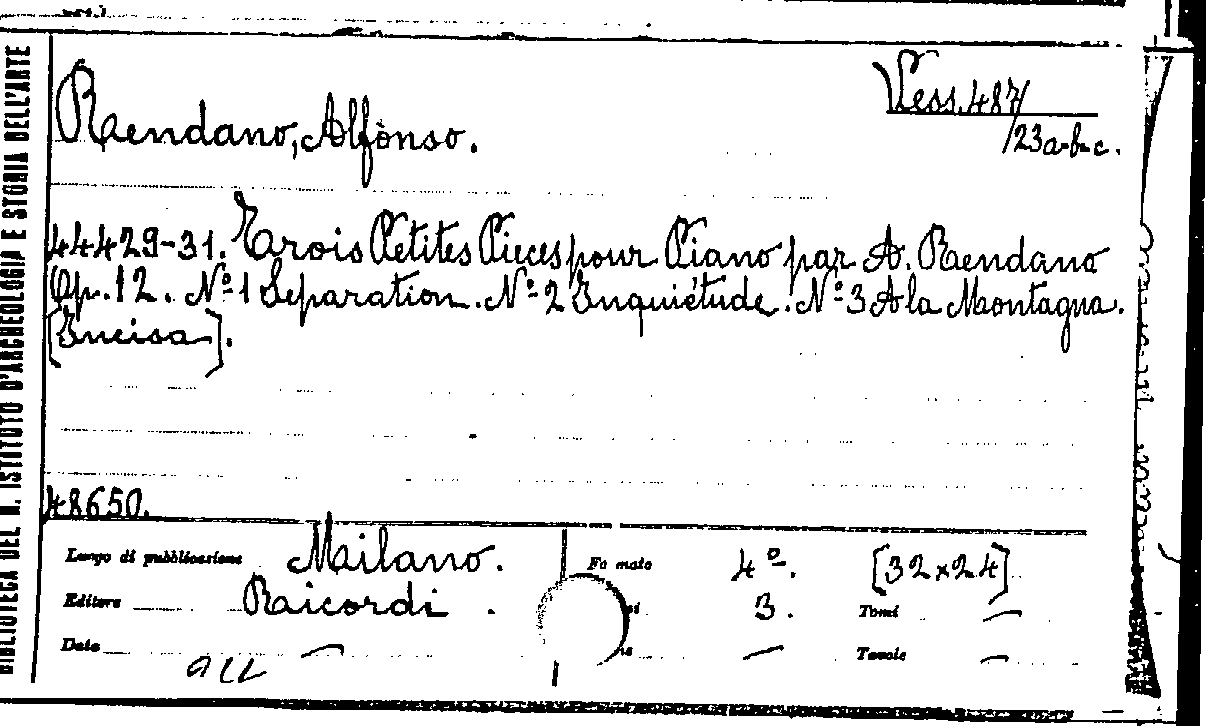 BIBLIOTECA DEL R. ISTITUTO D'ARCHEOLOGIA E STORIA DELL'ARTE
Vess. 487/
/23a-b-c.
Rendano, Alfonso.
44429-31. Trois Petites Pieces pour Piano par A. Rendano
Op. 12. Nº 1 Separation. Nº 2 Inquiétude. Nº 3 A la Montagna.
[Incisa].
48650.
Luogo di pubblicazione Milano. Fo mato 4º. [32×24]
Editore Ricordi. 3. Tomi —
Data — — Tavole —